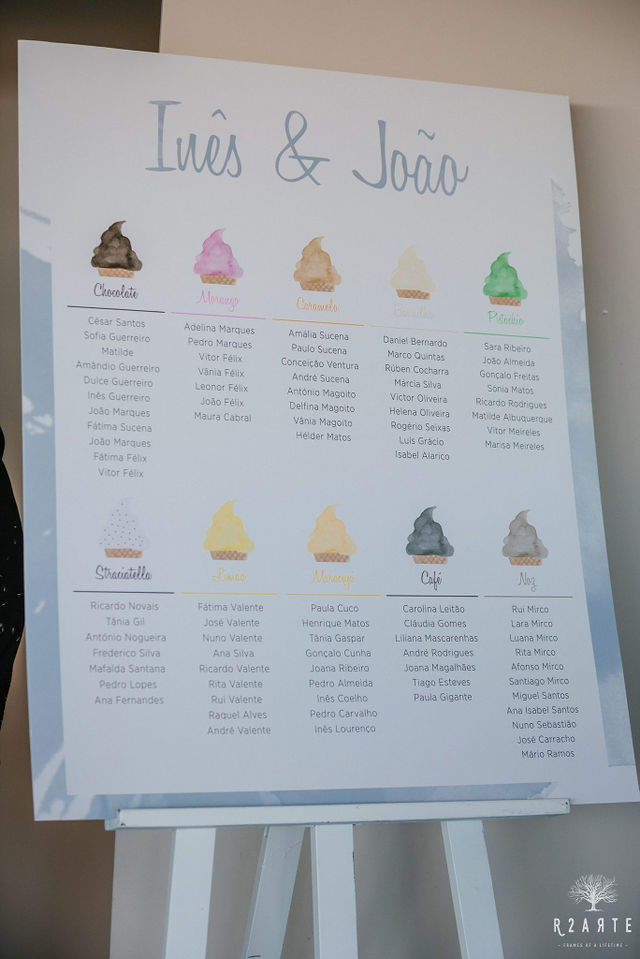 Inês & João
Chocolate
César Santos
Sofia Guerreiro
Matilde
Amândio Guerreiro
Dulce Guerreiro
Inês Guerreiro
João Marques
Fátima Sucena
João Marques
Fátima Félix
Vitor Félix
Morango
Adelina Marques
Pedro Marques
Vitor Félix
Vânia Félix
Leonor Félix
João Félix
Maura Cabral
Caramelo
Amália Sucena
Paulo Sucena
Conceição Ventura
André Sucena
António Magoito
Delfina Magoito
Vânia Magoito
Hélder Matos
Daniel Bernardo
Marco Quintas
Rúben Cocharra
Márcia Silva
Victor Oliveira
Helena Oliveira
Rogério Seixas
Luís Grácio
Isabel Alarico
Pistachio
Sara Ribeiro
João Almeida
Gonçalo Freitas
Sónia Matos
Ricardo Rodrigues
Matilde Albuquerque
Vitor Meireles
Marisa Meireles
Straciatella
Ricardo Novais
Tânia Gil
António Nogueira
Frederico Silva
Mafalda Santana
Pedro Lopes
Ana Fernandes
Limão
Fátima Valente
José Valente
Nuno Valente
Ana Silva
Ricardo Valente
Rita Valente
Rui Valente
Raquel Alves
André Valente
Maracujá
Paula Cuco
Henrique Matos
Tânia Gaspar
Gonçalo Cunha
Joana Ribeiro
Pedro Almeida
Inês Coelho
Pedro Carvalho
Inês Lourenço
Café
Carolina Leitão
Cláudia Gomes
Liliana Mascarenhas
André Rodrigues
Joana Magalhães
Tiago Esteves
Paula Gigante
Noz
Rui Mirco
Lara Mirco
Luana Mirco
Rita Mirco
Afonso Mirco
Santiago Mirco
Miguel Santos
Ana Isabel Santos
Nuno Sebastião
José Carracho
Mário Ramos
R2ARTE
- FRAMES OF A LIFETIME -